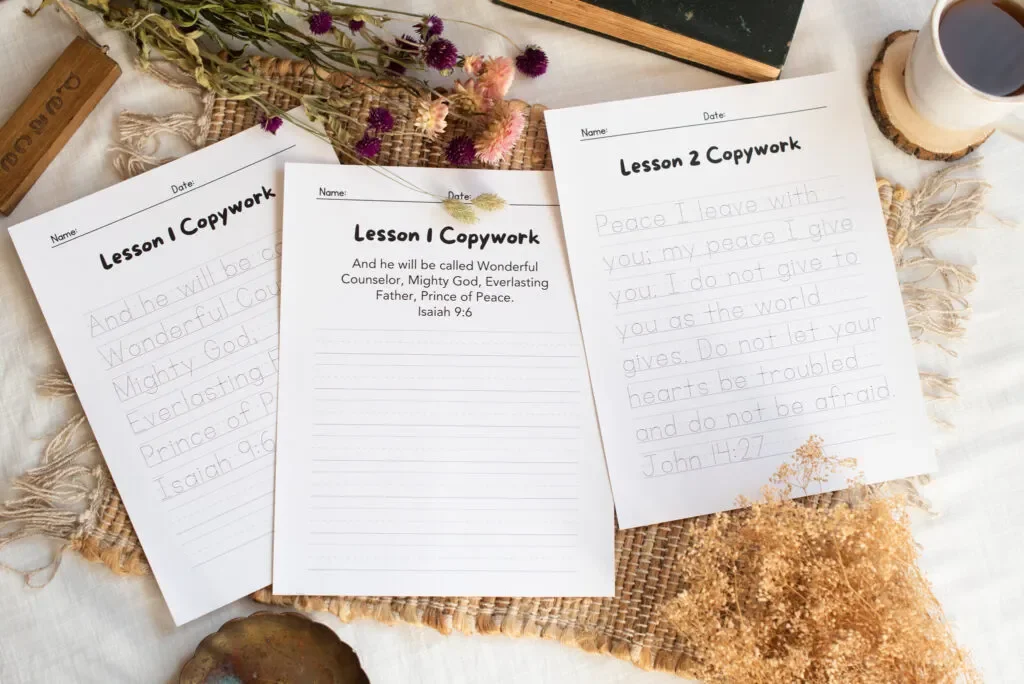 Name:
Date:
Lesson 1 Copywork
And he will be
Wonderful
Mighty God,
Everlasting
Prince of
Isaiah 9:6
Name:
Date:
Lesson 1 Copywork
And he will be called Wonderful
Counselor, Mighty God, Everlasting
Father, Prince of Peace.
Isaiah 9:6
Name:
Date:
Lesson 2 Copywork
Peace I leave with
you; my peace I give
you. I do not give to
you as the world
gives. Do not let your
hearts be troubled
and do not be afraid.
John 14:27